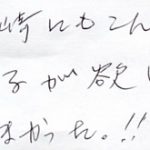 崎にもこん
子が欲し
まかった。!!